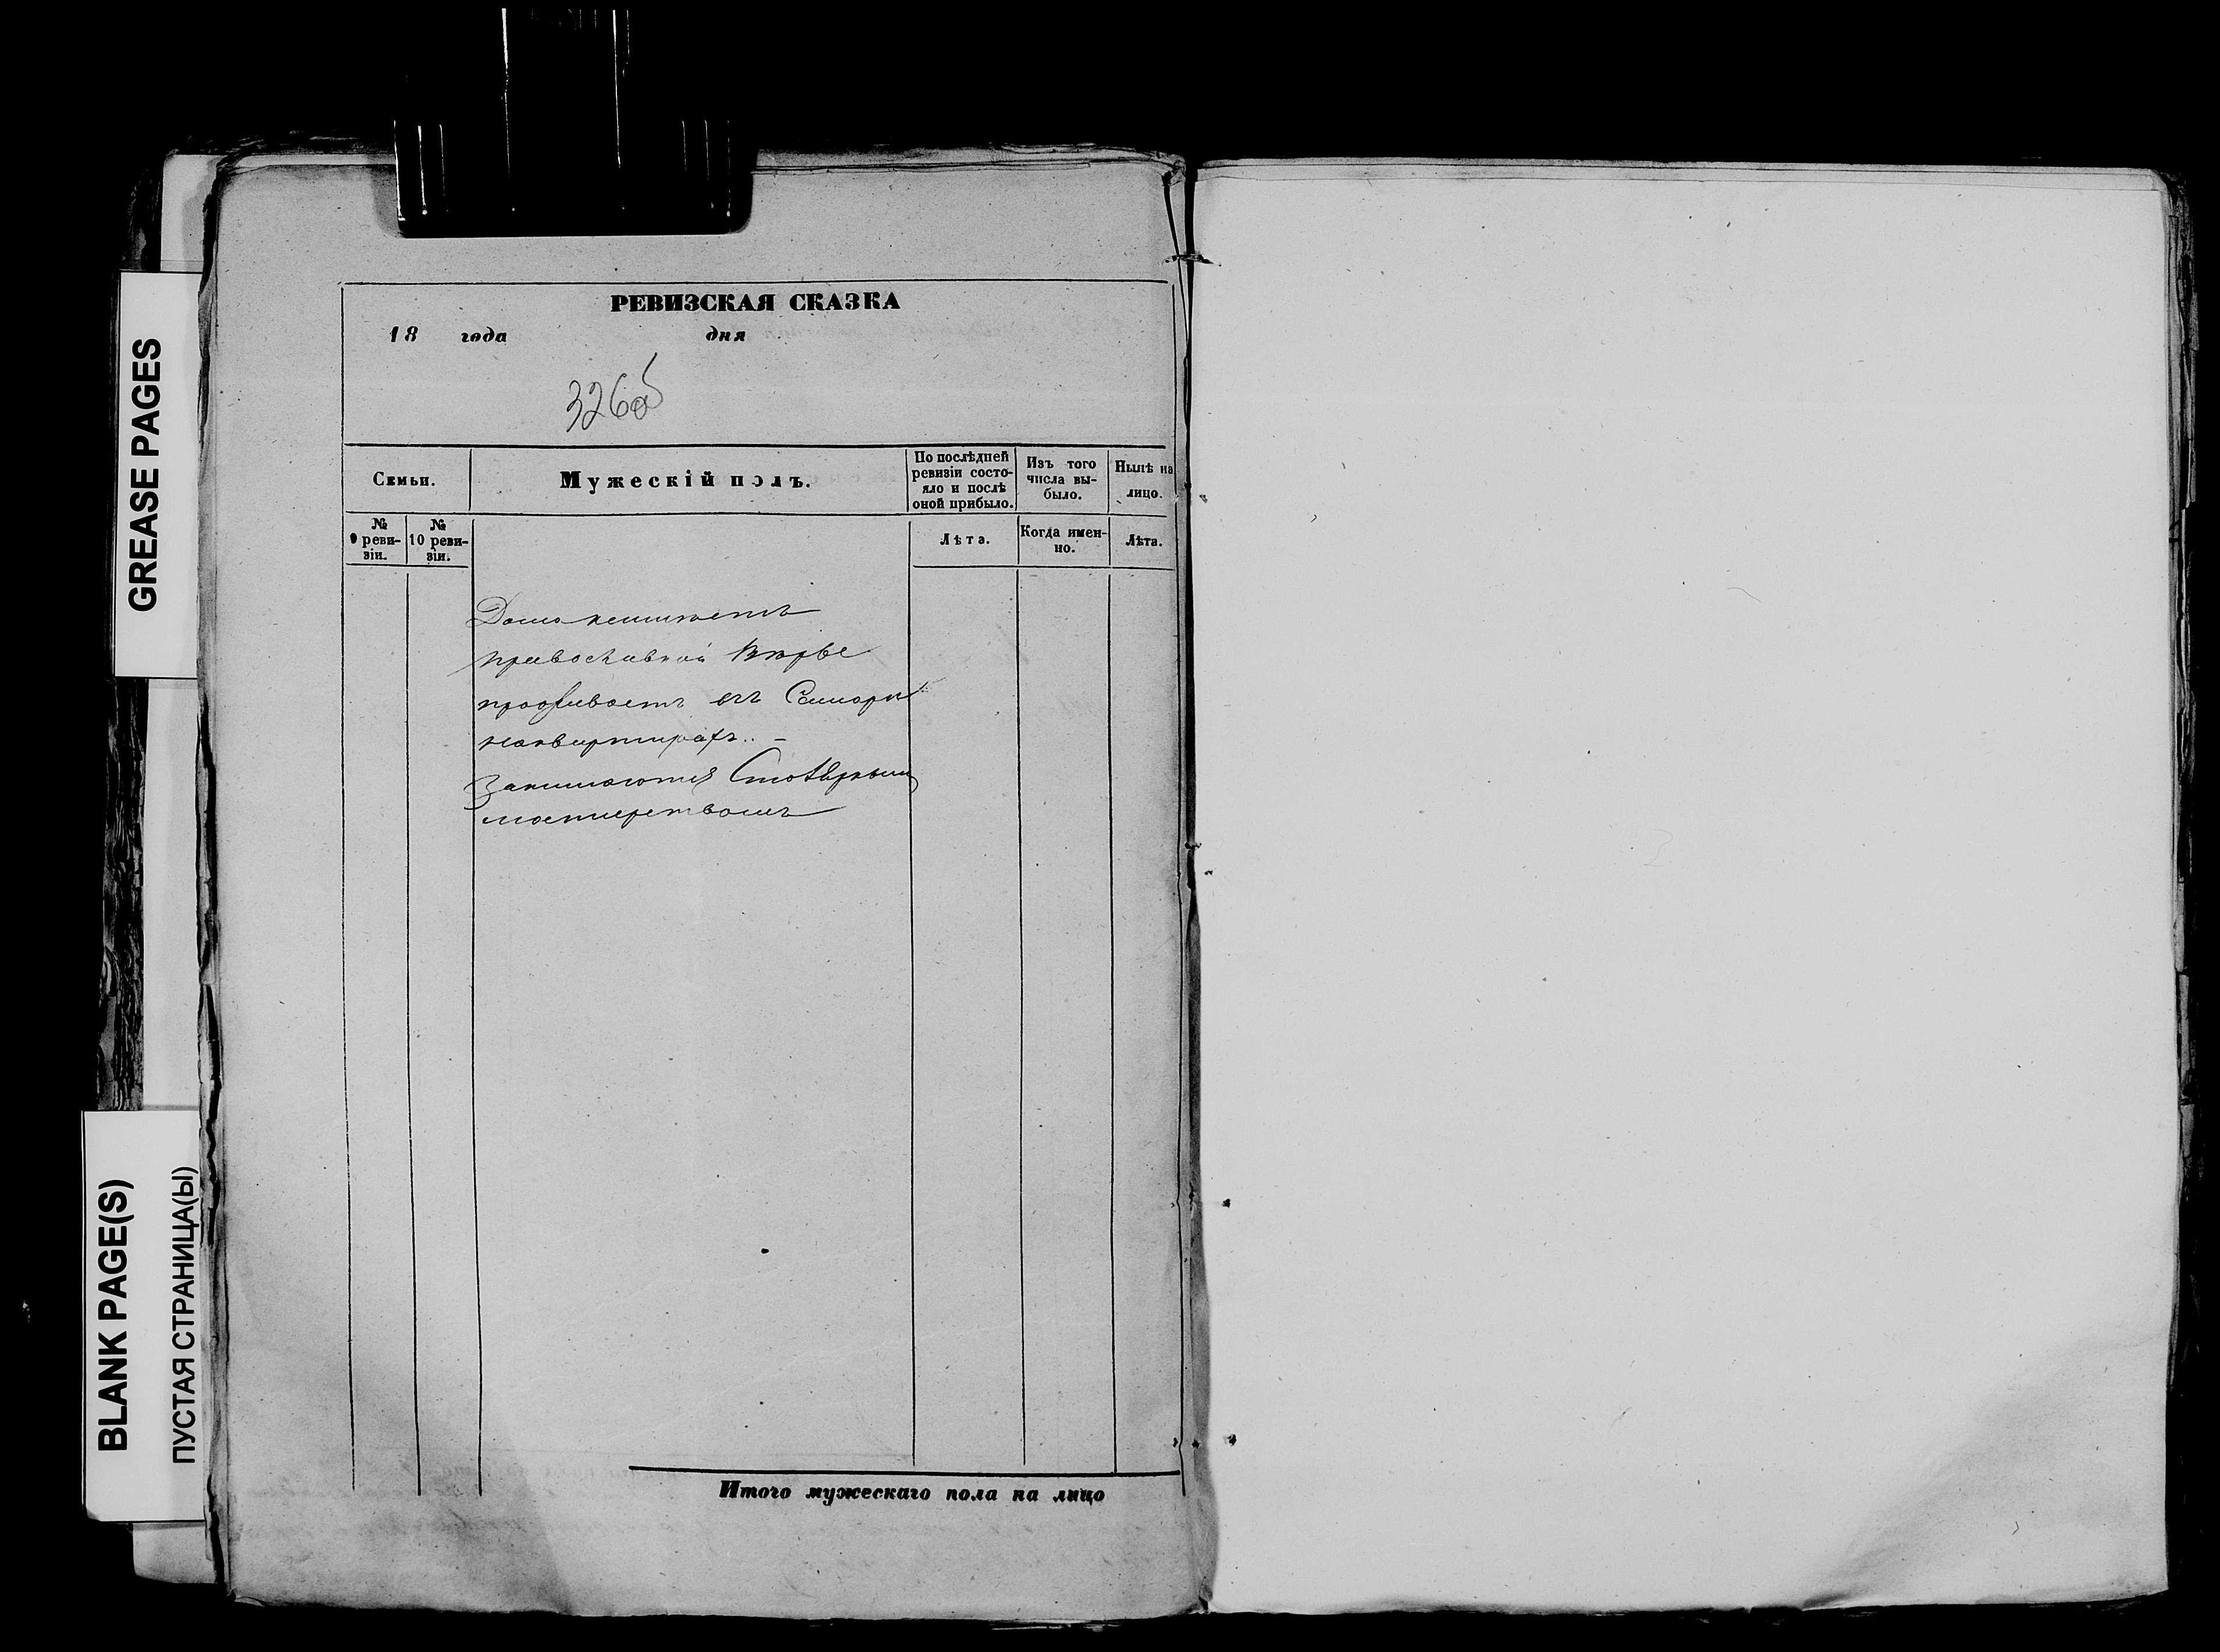 GREASE PAGES
BLANK PAGE(S)
ПУСТАЯ СТРАНИЦА(Ы)
РЕВИЗСКАЯ СКАЗКА
18 года дня
326об
Семьи.
Мужескій полъ.
По послѣдней ревизіи состо-
яло и послѣ
оной прибыло.
Изъ того
числа вы-
было.
Нынѣ на
лицо.
№
9 реви-
зіи.
№
10 реви-
зіи.
Лѣта.
Когда имен-
но.
Лѣта.
Дома неимѣетъ
православной вѣры
проживаетъ въ Самарѣ
наквартирахъ. -
Занимается Столярнымъ
мастерствомъ
Итого мужескаго пола на лицо